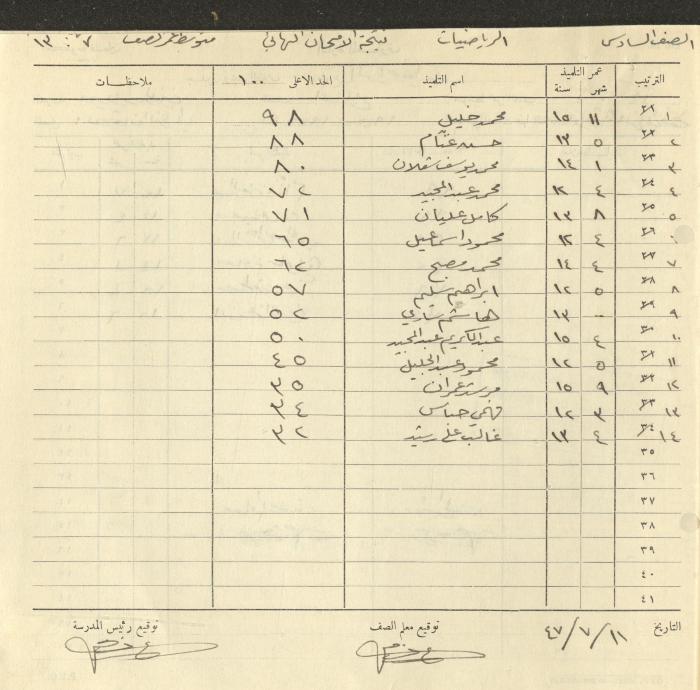 الصف السادس الرياضيات نتيجة الامتحان النهائي متوسط عمر الصف ٧ : ١٣
الترتيب عمر التلميذ اسم التلميذ الحد الاعلى ١٠٠ ملاحظات
شهر سنة
١ ١١ ١٥ محمد خليل ٩٨
٢ ٥ ١٣ حسن غنام ٨٨
٣ ١ ١٤ محمد يوسف شعلان ٨٠
٤ ٤ ١٢ محمد عبد المجيد ٧٢
٥ ٨ ١٣ كامل عليان ٧١
٤ ١٢ محمود اسماعيل ٦٥
٧ ٤ ١٤ محمد مصبح ٦٢
٨ ٥ ١٢ ابراهيم سليم ٥٧
٩ ٠ ١٣ هاشم ساري ٥٢
١٠ ٤ ١٥ عبد الكريم عبد المجيد ٥٠
١١ ٥ ١٢ محمود عبد الجليل ٤٥
١٢ ٩ ١٥ مرشد عمران ٣٥
١٣ ٣ ١٢ فهمي ٣٤
١٤ ٤ ١٣ غالب علي رشيد ٣٢
٣٥
٣٦
٣٧
٣٨
٣٩
٤٠
٤١
التاريخ ١١/٧/٤٧ توقيع معلم الصف توقيع رئيس المدرسة